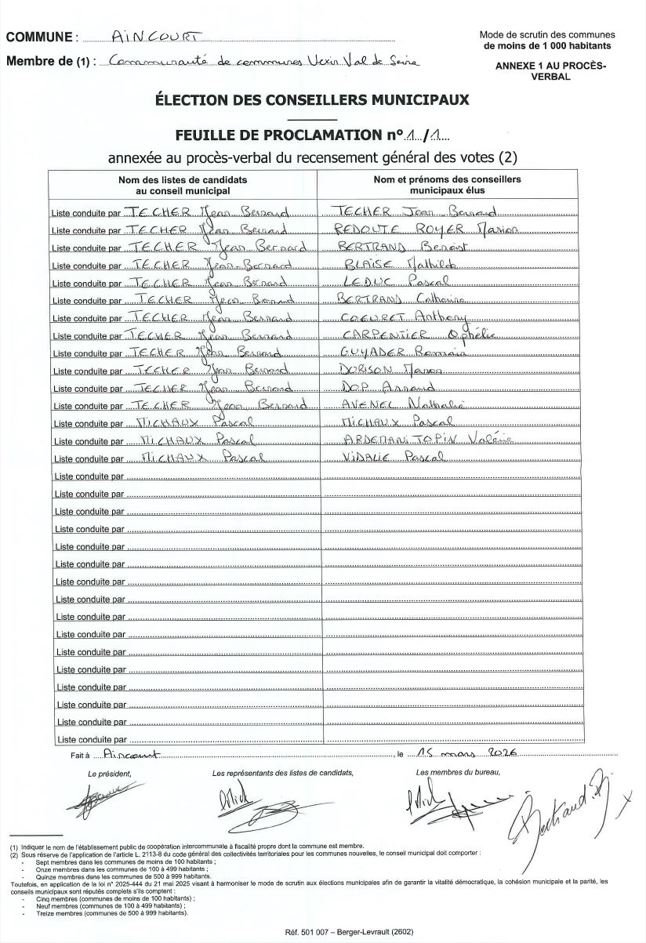 COMMUNE : AINCOURT
Mode de scrutin des communes
de moins de 1 000 habitants
Membre de (1) : Communauté de communes Vexin Val de Seine
ANNEXE 1 AU PROCÈS-
VERBAL
ÉLECTION DES CONSEILLERS MUNICIPAUX
FEUILLE DE PROCLAMATION n° 1 / 1
annexée au procès-verbal du recensement général des votes (2)
Nom des listes de candidats
au conseil municipal
Nom et prénoms des conseillers
municipaux élus
Liste conduite par TECHER Jean Bernard TECHER Jean Bernard
Liste conduite par TECHER Jean Bernard REDOUTE ROYER Marion
Liste conduite par TECHER Jean Bernard BERTRAND Benoit
Liste conduite par TECHER Jean-Bernard BLAISE Mathilde
Liste conduite par TECHER Jean Bernard LEDUC Pascal
Liste conduite par TECHER Jean Bernard BERTRAND Catherine
Liste conduite par TECHER Jean Bernard COEURET Anthony
Liste conduite par TECHER Jean Bernard CARPENTIER Ophélie
Liste conduite par TECHER Jean Bernard GUYADER Romain
Liste conduite par TECHER Jean Bernard DORISON
Liste conduite par TECHER Jean Bernard DOP Arnaud
Liste conduite par TECHER Jean Bernard AVENEL Nathalie
Liste conduite par MICHAUX Pascal MICHAUX Pascal
Liste conduite par MICHAUX Pascal ARDEMANI TOPIN Valérie
Liste conduite par MICHAUX Pascal VIDALIE Pascal
Liste conduite par
Liste conduite par
Liste conduite par
Liste conduite par
Liste conduite par
Liste conduite par
Liste conduite par
Liste conduite par
Liste conduite par
Liste conduite par
Liste conduite par
Liste conduite par
Liste conduite par
Liste conduite par
Liste conduite par
Liste conduite par
Fait à Aincourt, le 15 mars 2026
Le président,
Les représentants des listes de candidats,
Les membres du bureau,
Bertrand.B
(1) Indiquer le nom de l'établissement public de coopération intercommunale à fiscalité propre dont la commune est membre.
(2) Sous réserve de l'application de l'article L. 2113-8 du code général des collectivités territoriales pour les communes nouvelles, le conseil municipal doit comporter :
- Sept membres dans les communes de moins de 100 habitants ;
- Onze membres dans les communes de 100 à 499 habitants ;
- Quinze membres dans les communes de 500 à 999 habitants.
Toutefois, en application de la loi n° 2025-444 du 21 mai 2025 visant à harmoniser le mode de scrutin aux élections municipales afin de garantir la vitalité démocratique, la cohésion municipale et la parité, les
conseils municipaux sont réputés complets s'ils comptent :
- Cinq membres (communes de moins de 100 habitants) ;
- Neuf membres (communes de 100 à 499 habitants) ;
- Treize membres (communes de 500 à 999 habitants).
Réf. 501 007 – Berger-Levrault (2602)